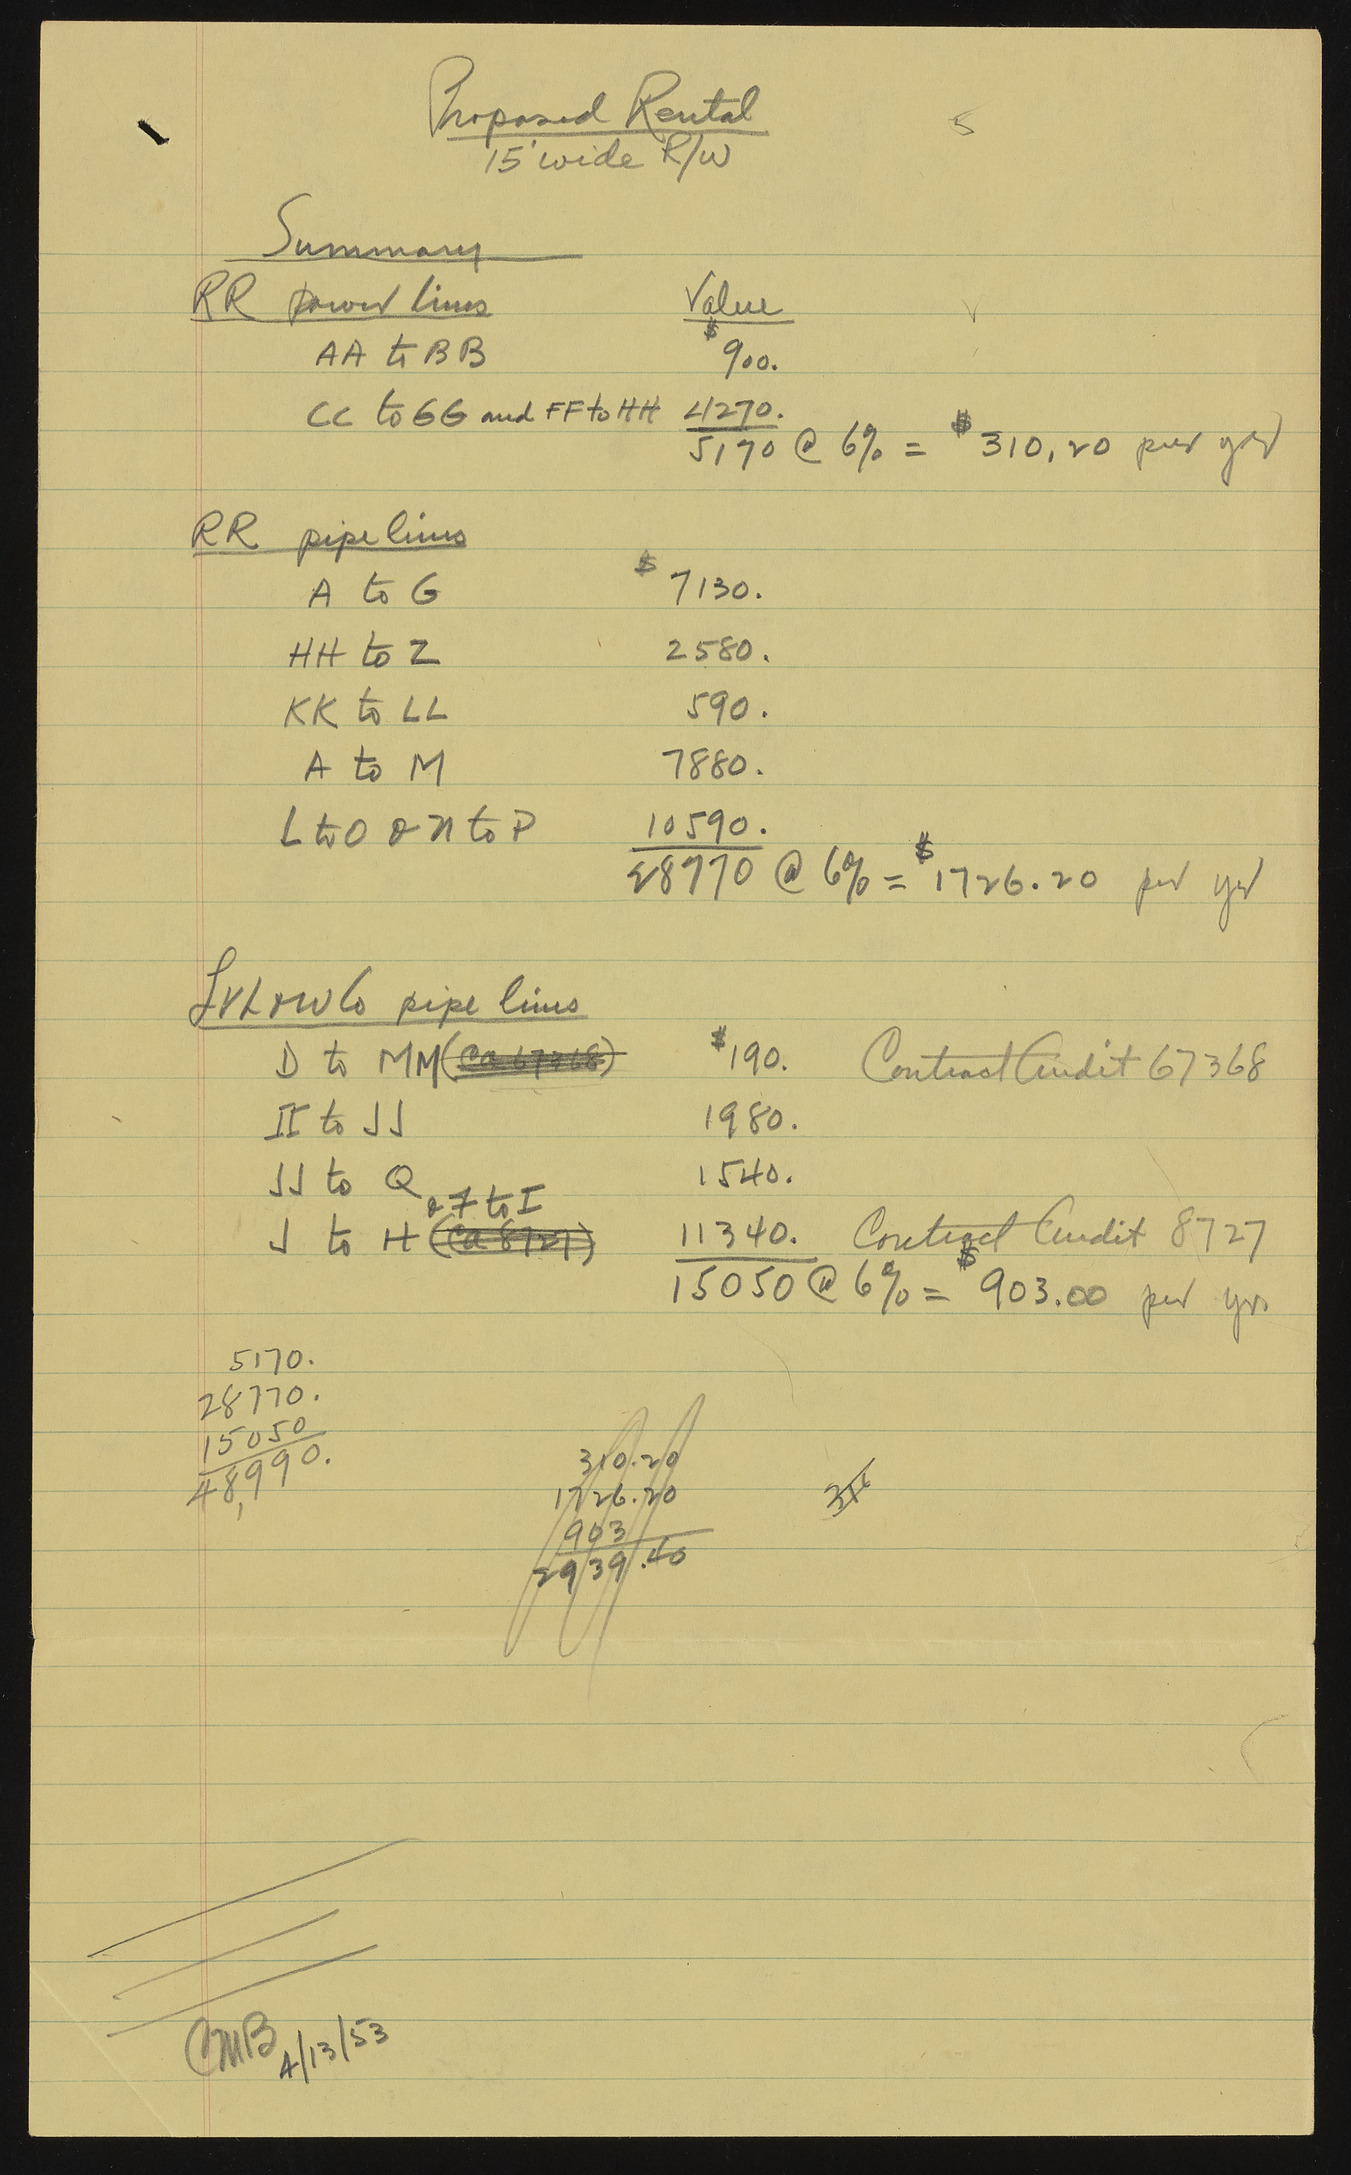 Proposed Rental
15' wide R/W
5
Summary
RR power lines Value
AA to BB $900.
CC to GG and FF to HH 4270.
5170 @ 6% = $310.20 per yr
RR pipe lines
A to G $7130.
HH to Z 2580.
KK to LL 590.
A to M 7880.
L to O & N to P 10590.
28770 @ 6% = $1726.20 per yr
LVL&WCo pipe lines
D to MM (CA 67368) $190. Contract Audit 67368
II to JJ 1980.
JJ to Q 1540.
& F to I
J to H (CA 8727) 11340. Contract Audit 8727
15050 @ 6% = $903.00 per yr.
5170.
28770.
15050
48,990.
310.20
1726.20
903
2939.40
CMB 4/13/53